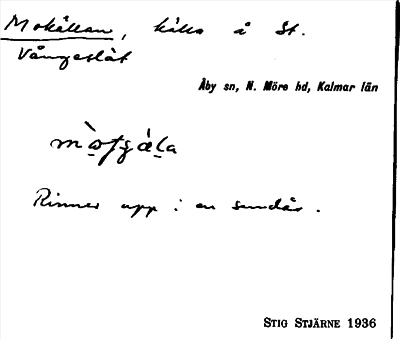 Mokällan, källa å St.
Vångeslät
Åby sn, N. Möre hd, Kalmar län
Rinner upp i en sandås.
STIG STJÄRNE 1936